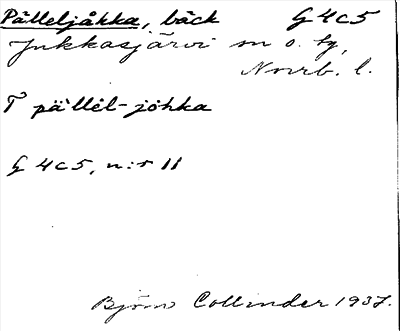 Pälleljåkka, bäck G 4c5
Jukkasjärvi sn o. tg,
Norrb. l.
T pällēl-johka
G 4c5, n:r 11
Björn Collinder 1937.